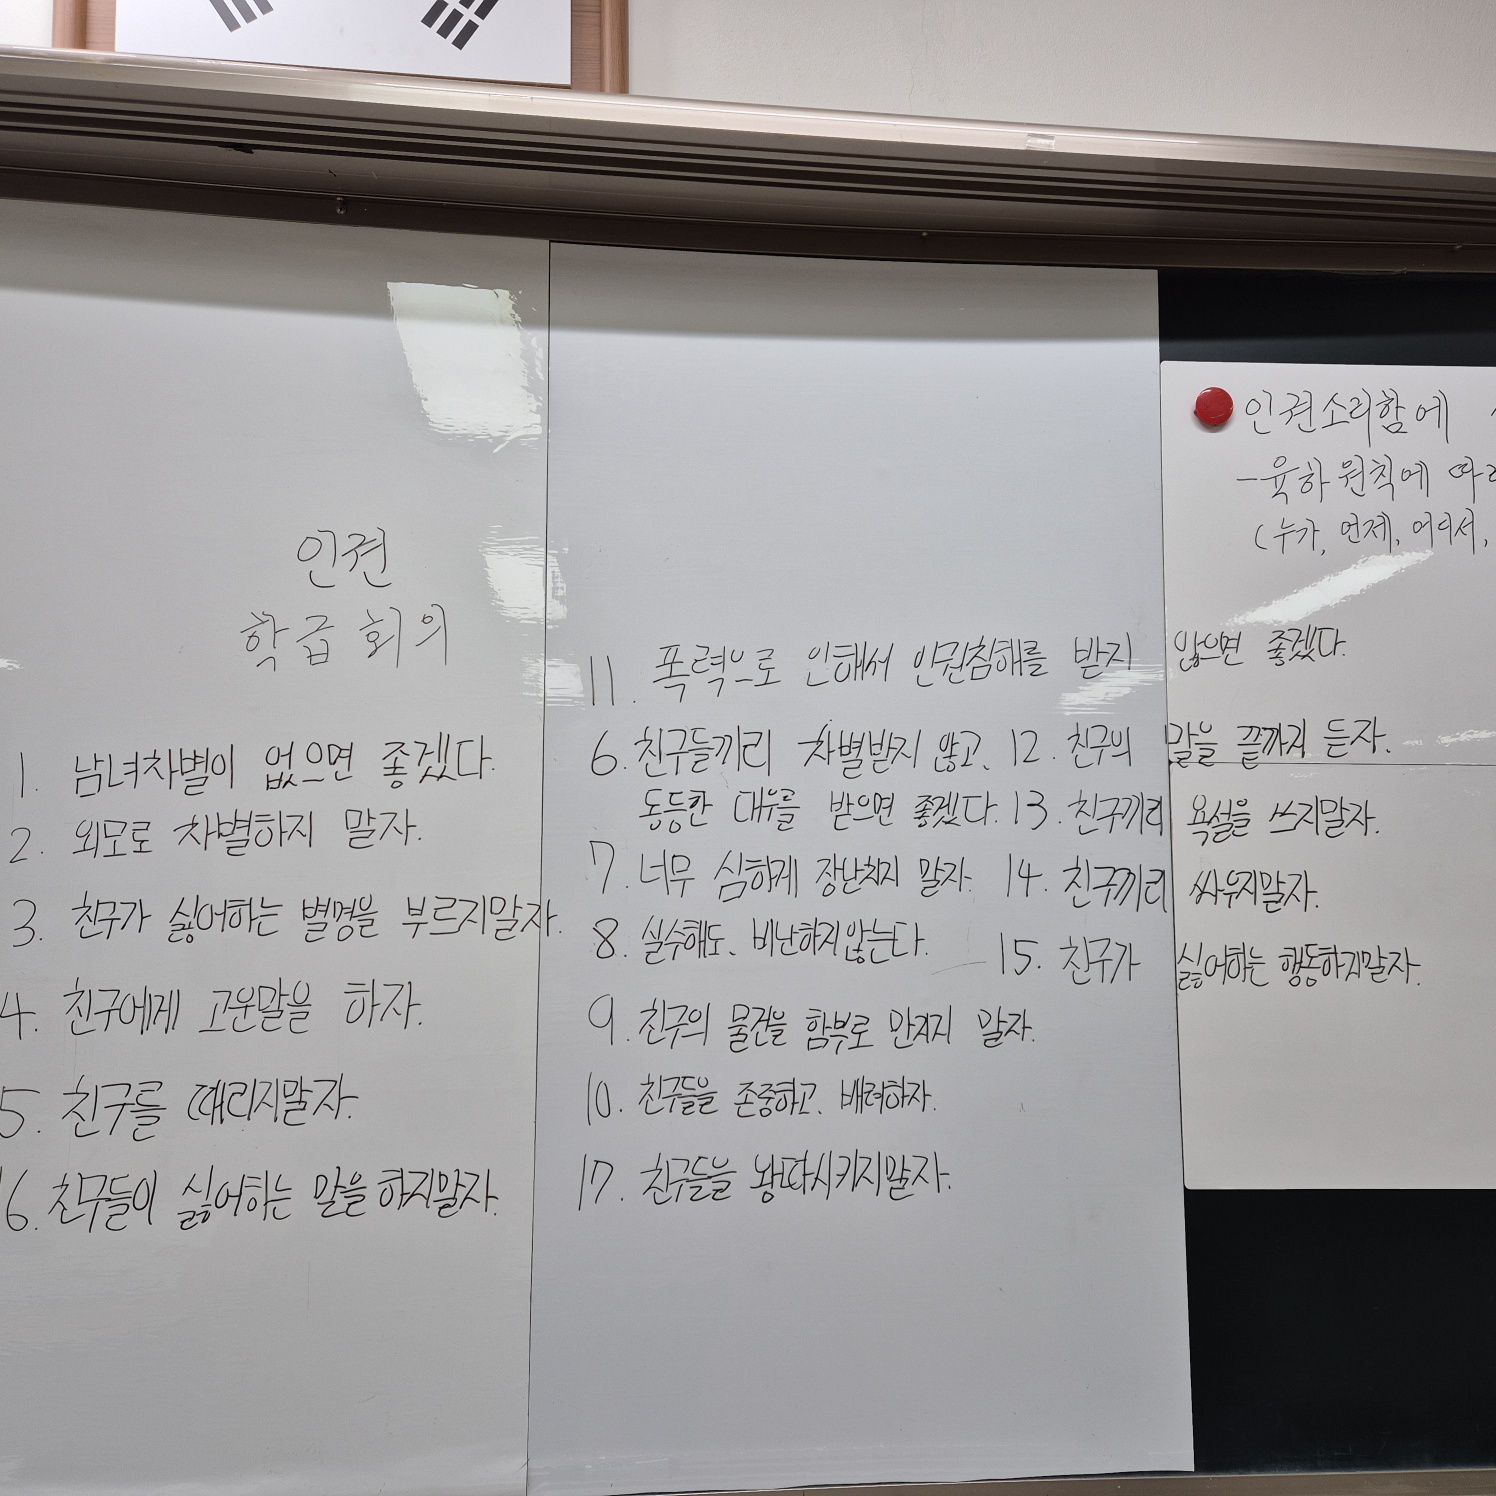 인권
학급회의
1. 남녀차별이 없으면 좋겠다.
2. 외모로 차별하지 말자.
3. 친구가 싫어하는 별명을 부르지말자.
4. 친구에게 고운말을 하자.
5. 친구를 때리지말자.
16. 친구들이 싫어하는 말을 하지말자.
11. 폭력으로 인해서 인권침해를 받지 않으면 좋겠다.
6. 친구들끼리 차별받지 않고,
동등한 대우를 받으면 좋겠다.
7. 너무 심하게 장난치지 말자.
8. 실수해도, 비난하지않는다.
9. 친구의 물건을 함부로 만지지 말자.
10. 친구들을 존중하고, 배려하자.
17. 친구들을 왕따시키지말자.
12. 친구의 말을 끝까지 듣자.
13. 친구끼리 욕설을 쓰지말자.
14. 친구끼리 싸우지말자.
15. 친구가 싫어하는 행동하지말자.
인권소리함에
-육하원칙에 따라
(누가, 언제, 어디서,